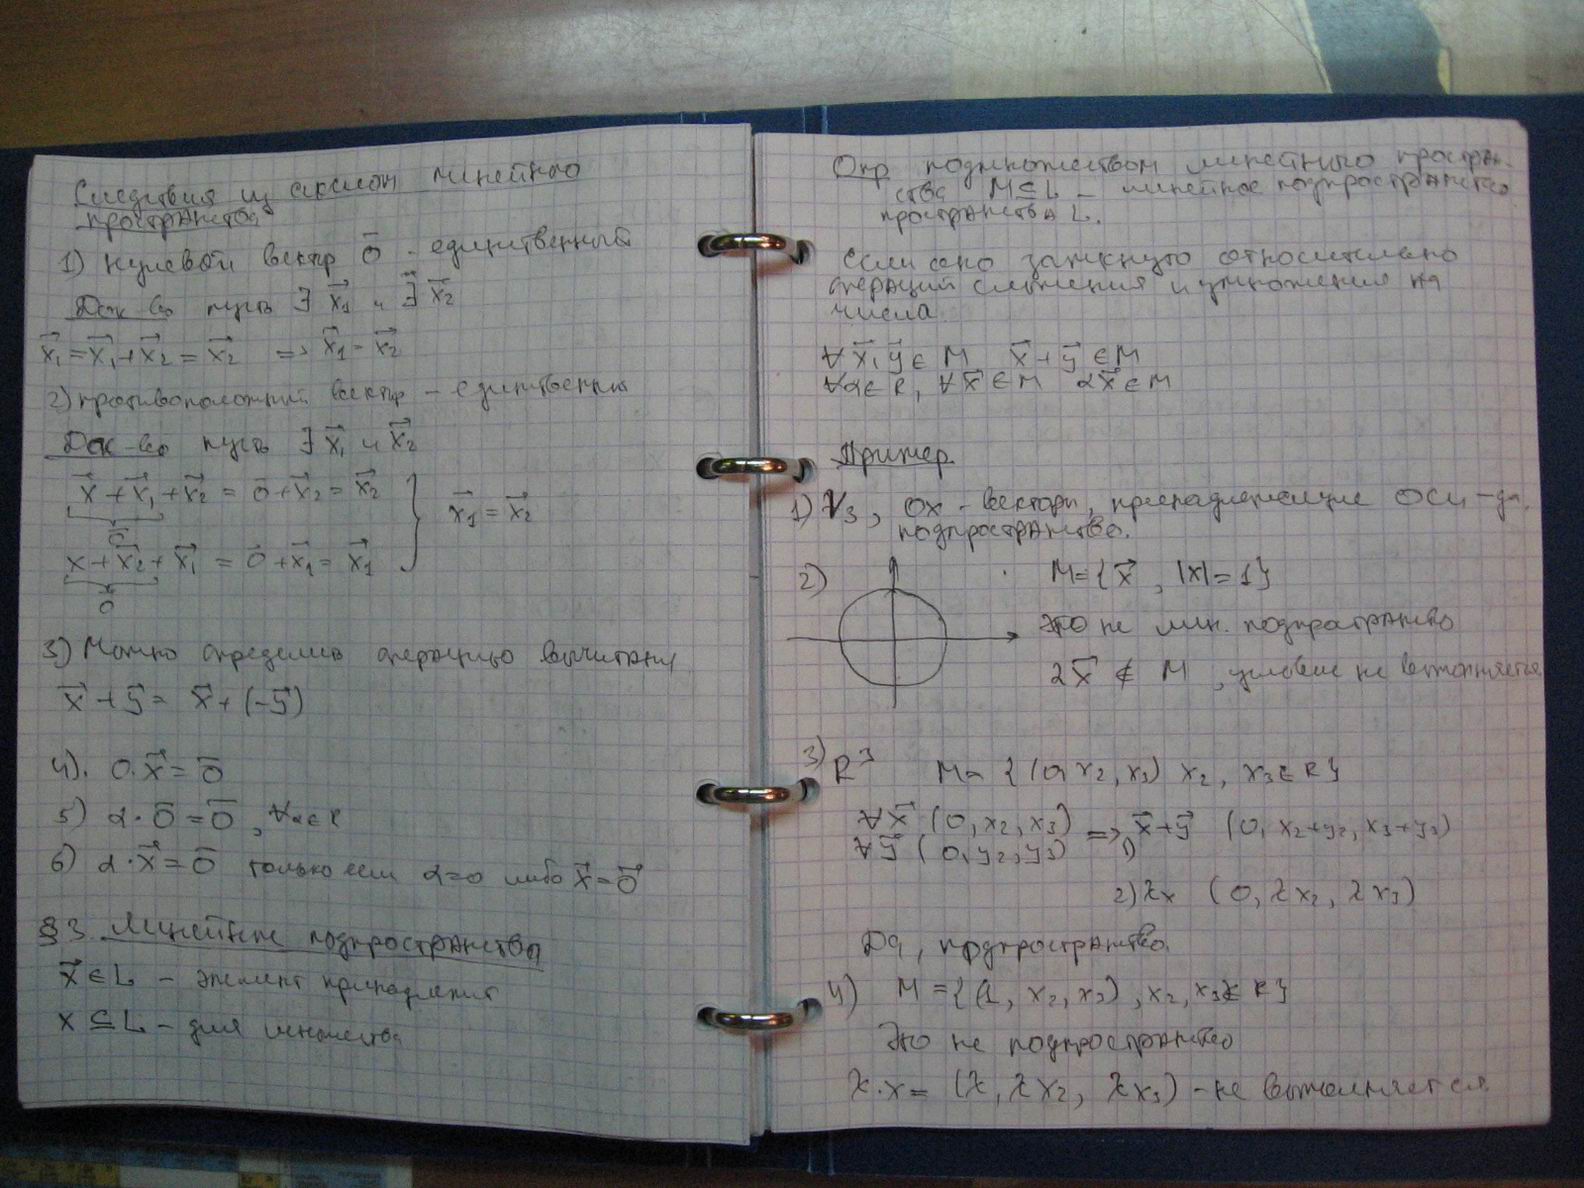 Следствия из аксиом линейного
пространства
1) Нулевой вектр 0̄ - единственный
Док-во пусть ∃ x⃗₁ и ∃ x⃗₂
x⃗₁ = x⃗₁ + x⃗₂ = x⃗₂ => x⃗₁ = x⃗₂
2) противоположный вектр - единственный
Док-во пусть ∃ x⃗₁ и x⃗₂
x⃗ + x⃗₁ + x⃗₂ = 0̄ + x⃗₂ = x⃗₂
0̄
x⃗₁ = x⃗₂
x + x⃗₂ + x⃗₁ = 0̄ + x⃗₁ = x⃗₁
0̄
3) Можно определить операцию вычитания
x⃗ + y⃗ = x⃗ + (-y⃗)
4). 0·x⃗ = 0̄
5) α·0̄ = 0̄, ∀α∈R
6) α·x⃗ = 0̄ только если α=0 либо x⃗ = 0⃗
§3 Линейные подпространства
x⃗ ∈ L - элемент принадлежит
x ⊆ L - для множества
Опр подмножеством линейного простран-
ства M ⊆ L - линейное подпространство
пространства L.
Если оно замкнуто относительно
операций сложения и умножения на
числа.
∀ x⃗, y⃗ ∈ M x⃗ + y⃗ ∈ M
∀α∈R, ∀x⃗ ∈ M αx⃗ ∈ M
Пример
1) V₃, Ox - вектора, принадлежащие оси - да,
подпространство.
2) M = {x⃗, |x| = 1}
Это не лин. подпространство
2x⃗ ∉ M, условие не выполняется
3) R³ M = {(0, x₂, x₃) x₂, x₃ ∈ R}
∀x⃗ (0, x₂, x₃) => x⃗+y⃗ (0, x₂+y₂, x₃+y₃)
∀y⃗ (0, y₂, y₃) 1)
2) λx (0, λx₂, λx₃)
Да, подпространство.
4) M = {(1, x₂, x₃), x₂, x₃ ∈ R}
Это не подпространство
λ·x = (λ, λx₂, λx₃) - не выполняется